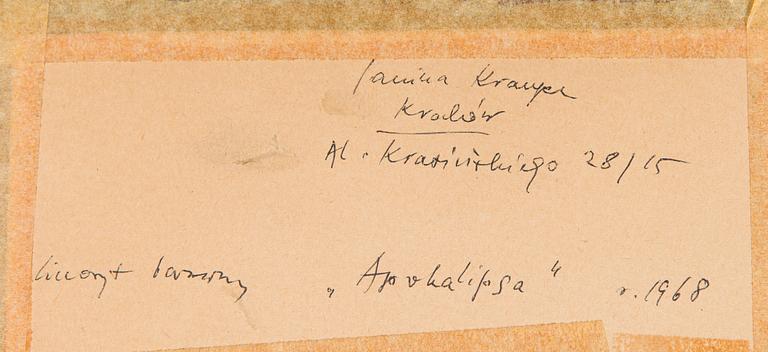 Janina Kraupe
Kraków
Al. Krasińskiego 28/15
linoryt barwny „Apokalipsa" r. 1968